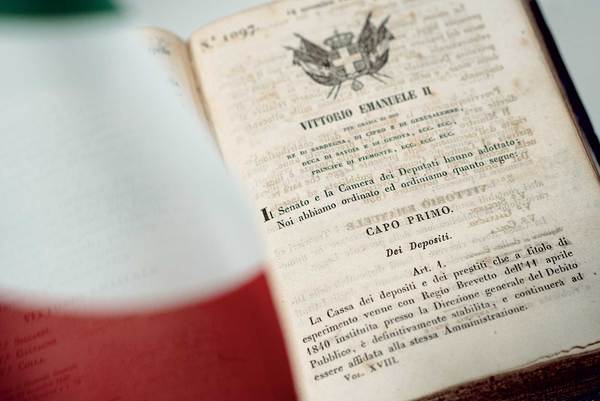 N.° 1097.
VITTORIO EMANUELE II
PER GRAZIA DI DIO
RE DI SARDEGNA, DI CIPRO E DI GERUSALEMME,
DUCA DI SAVOIA E DI GENOVA, ECC. ECC.
PRINCIPE DI PIEMONTE, ECC. ECC. ECC.
Il Senato e la Camera dei Deputati hanno adottato;
Noi abbiamo ordinato ed ordiniamo quanto segue:
CAPO PRIMO.
Dei Depositi.
Art. 1.
La Cassa dei depositi e dei prestiti che a titolo di
esperimento venne con Regio Brevetto dell'11 aprile
1840 instituita presso la Direzione generale del Debito
Pubblico, è definitivamente stabilita, e continuerà ad
essere affidata alla stessa Amministrazione.
Vol. XVIII.